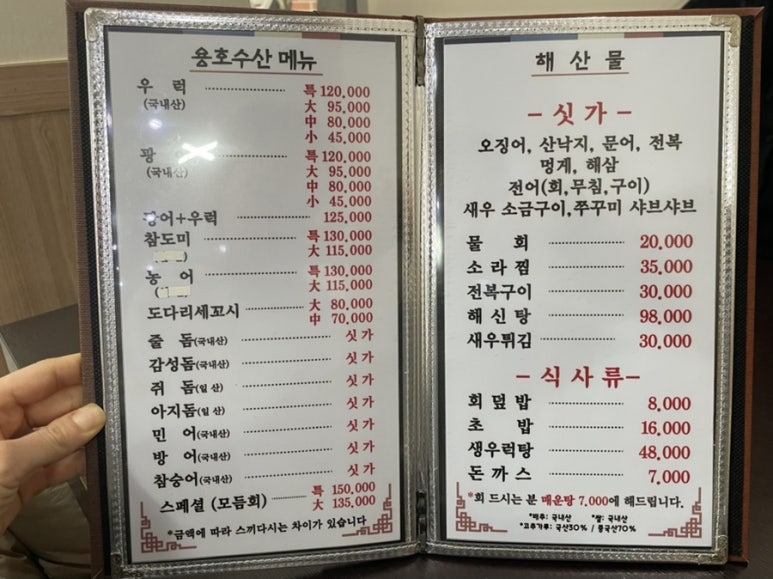 용호수산 메뉴
우 럭 특 120.000
(국내산) 大 95.000
中 80.000
小 45.000
광 특 120.000
(국내산 大 95.000
中 80.000
小 45.000
광어+우럭 125.000
참도미 특 130.000
大 115.000
농 어 특 130.000
大 115.000
도다리세꼬시 大 80.000
中 70.000
줄 돔(국내산) 싯가
감성돔(국내산) 싯가
쥐 돔(일 산) 싯가
아지돔(일 산) 싯가
민 어(국내산) 싯가
방 어(국내산) 싯가
참숭어(국내산) 싯가
스페셜 (모듬회) 특 150.000
大 135.000
*금액에 따라 스끼다시는 차이가 있습니다
해 산 물
- 싯 가 -
오징어, 산낙지, 문어, 전복
멍게, 해삼
전어(회,무침,구이)
새우 소금구이,쭈꾸미 샤브샤브
물 회 20.000
소 라 찜 35.000
전복구이 30.000
해 신 탕 98.000
새우튀김 30.000
- 식 사 류 -
회 덮 밥 8.000
초 밥 16.000
생우럭탕 48.000
돈 까 스 7.000
*회 드시는 분 매운탕 7.000에 해드립니다.
*배추: 국내산 *쌀: 국내산
*고추가루: 국산30% / 중국산70%